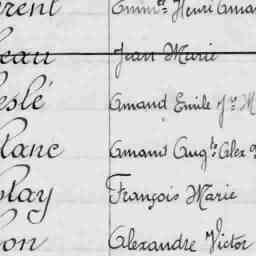 erent Emm.el Henri Aman
eau Jean Marie
eslé Amand Emile J.h M
lanc Amand Aug.te Alex
lay François Marie
on Alexandre Victor